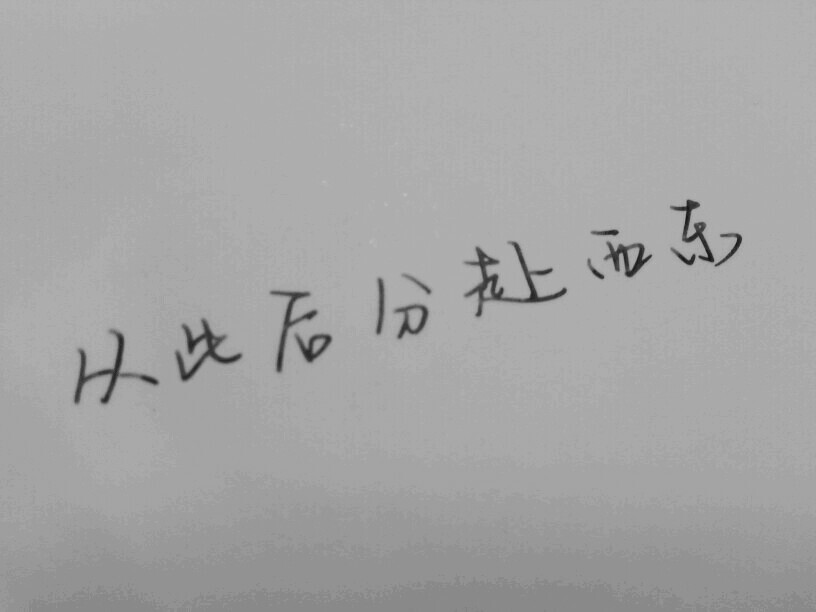 从此后分赴西东